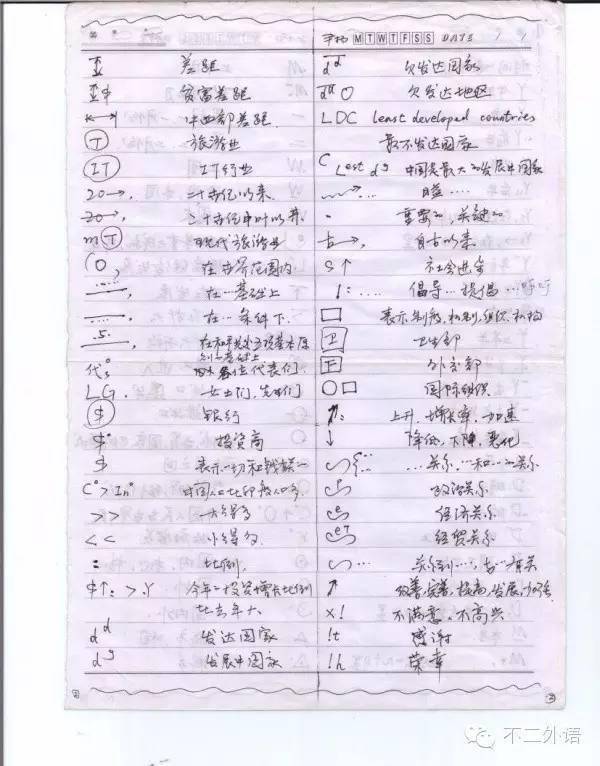 MTWTFSS DATE
差距
$ 贫富差距
中西部差距
T 旅游业
IT IT行业
20→, 二十世纪以来
20→, 二十世纪中叶以来
mT 现代旅游业
(O, 在世界范围内
在…基础上
在…条件下
.5. 在和平共处五项基本原则的基础上
代° 各位代表们
LG. 女士们,先生们
$ 银行
$° 投资商
$ 表示一切和钱
C°>In° 中国人口比印度人口多
>> 大得多
<< 小得多
: 比例
$↑: >.Y 今年投资增长比例
比去年大
d^d 发达国家
d^g 发展中国家
欠发达国家
欠发达地区
LDC least developed countries
最不发达国家
C Lest dg 中国是最大的发展中国家
…
重要的,关键的
古→, 自古以来
S↑ 社会进步
!: .... 倡导…提倡…呼吁
□ 表示制度,机制,组织,机构
卫 卫生部
外交部
○□ 国际组织
上升,增长率,加速
↓ 降低,下降,恶化
…关系,…和…的关系
政治关系
经济关系
经贸关系
… 关系到…,与…有关
改善,完善,提高,发展,加强
×! 不满意,不高兴
!t 感谢
!h 荣幸
② ③
不二外语